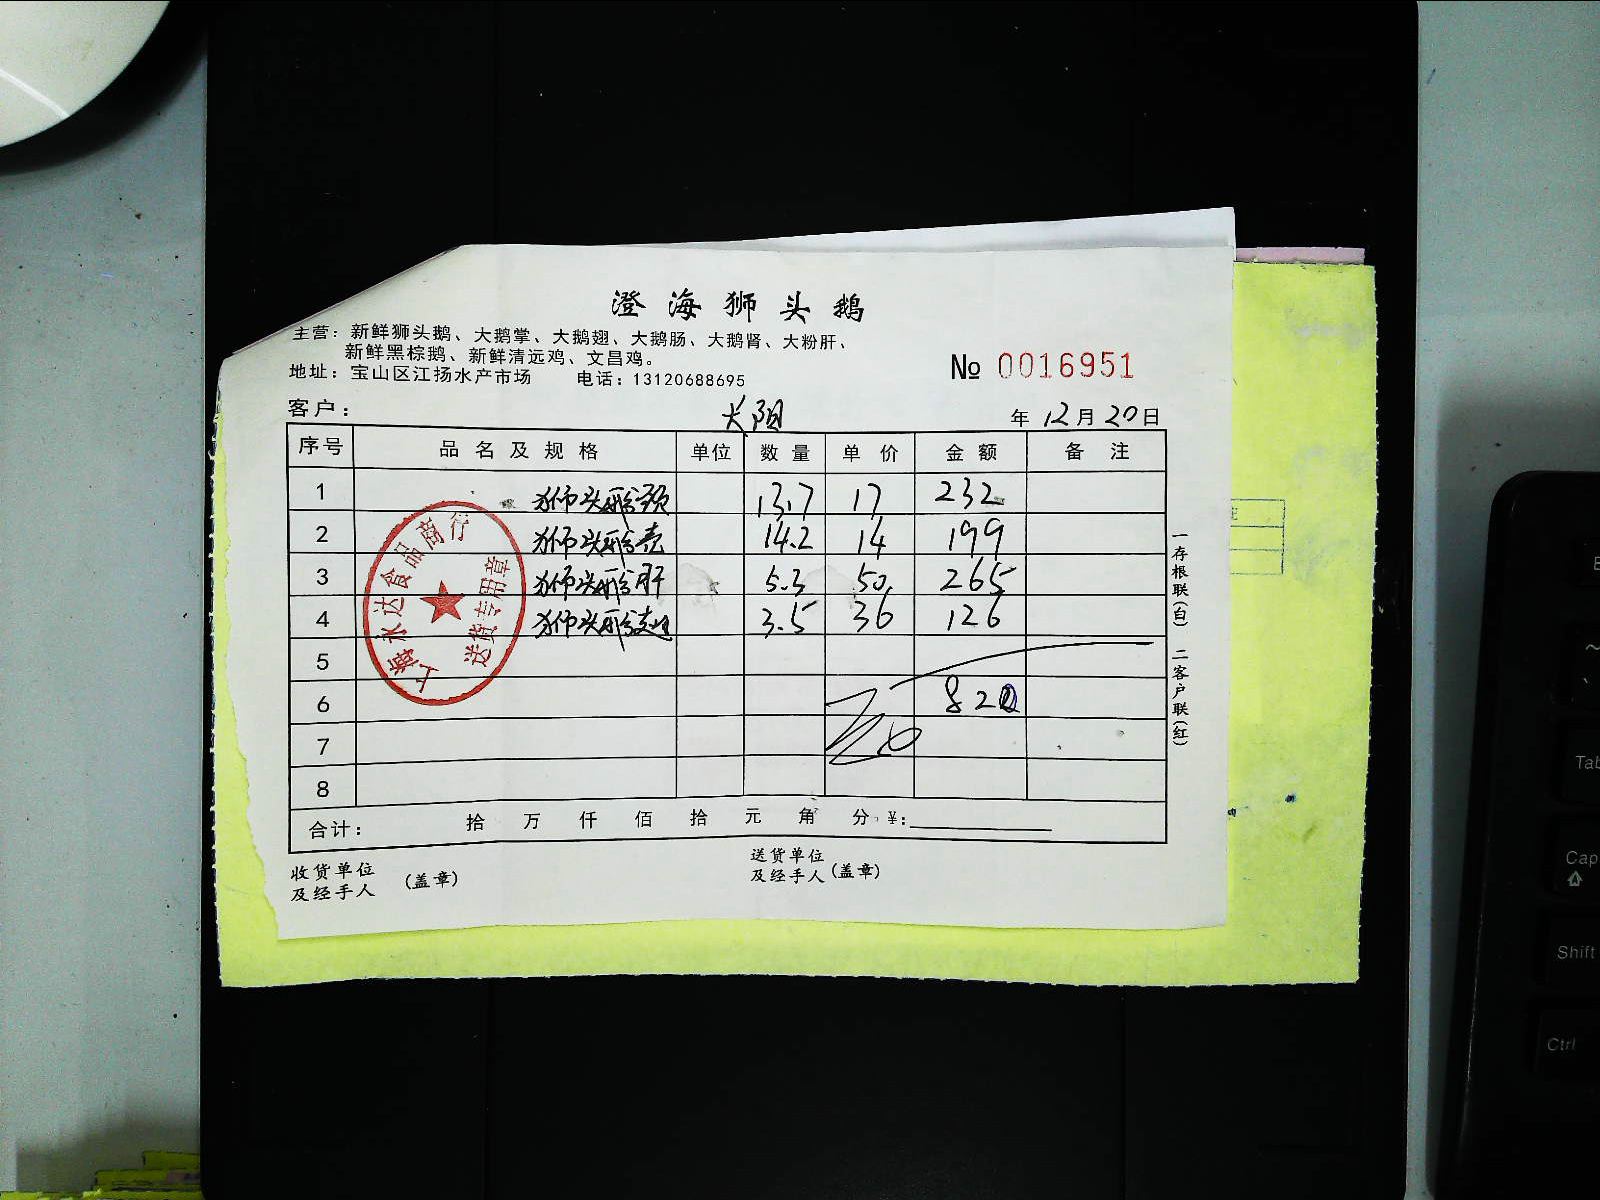 澄海狮头鹅
主营：新鲜狮头鹅、大鹅掌、大鹅翅、大鹅肠、大鹅肾、大粉肝、
新鲜黑棕鹅、新鲜清远鸡、文昌鸡。
地址：宝山区江扬水产市场 电话：13120688695
№ 0016951
客户： 年 12月 20日
序号 品名及规格 单位 数量 单价 金额 备注
1 狮头鹅颈 13.7 17 232
2 狮头鹅壳 14.2 14 199
3 狮头鹅肝 5.3 50 265
4 狮头鹅 3.5 36 126
5
6 822
7
8
合计： 拾 万 仟 佰 拾 元 角 分 ¥：
收货单位
及经手人 （盖章）
送货单位
及经手人（盖章）
一存根联（白） 二客户联（红）
上海永达食品商行
送货专用章
Tab
Cap
Shift
Ctrl